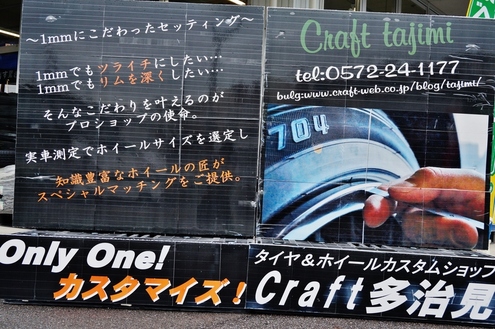 ～1mmにこだわったセッティング～
1mmでもツライチにしたい…
1mmでもリムを深くしたい…
そんなこだわりを叶えるのが
プロショップの使命。
実車測定でホイールサイズを選定し
知識豊富なホイールの匠が
スペシャルマッチングをご提供。
Only One!
カスタマイズ！
Craft tajimi
tel:0572-24-1177
bulg:www.craft-web.co.jp/blog/tajimi/
704
タイヤ＆ホイールカスタムショップ
Craft多治見